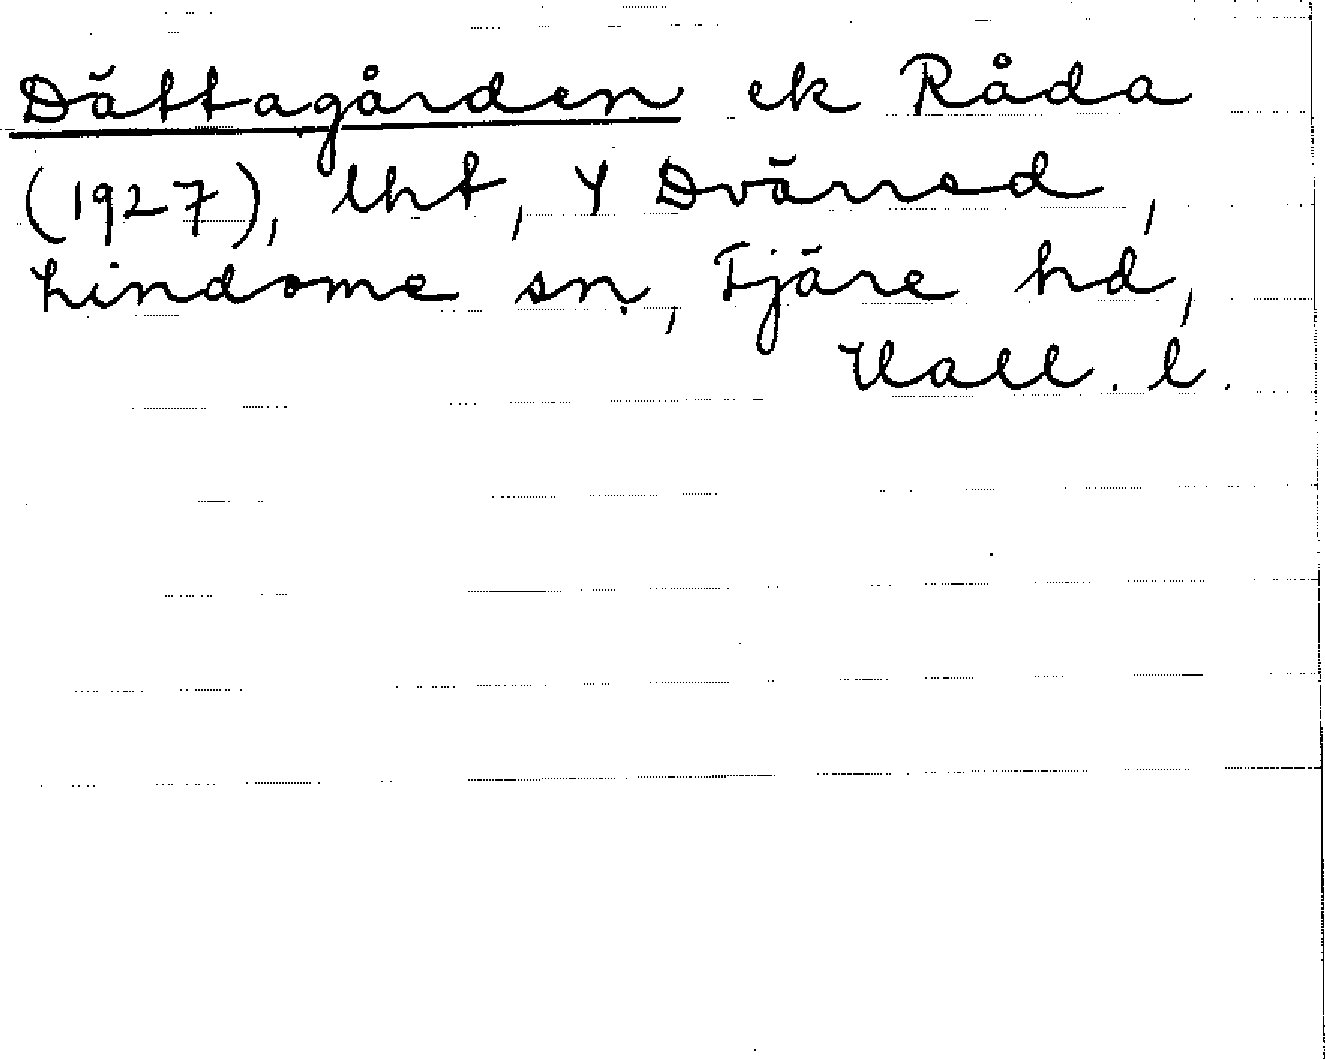 Dättagården ek Råda
(1927), lht, Y Dvärred,
Lindome sn, Fjäre hd,
Hall. l.